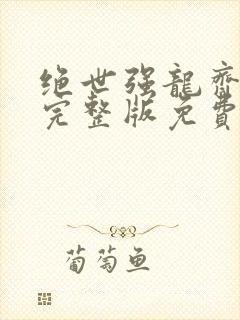 绝世强龍齊
完整版免費
葡萄鱼